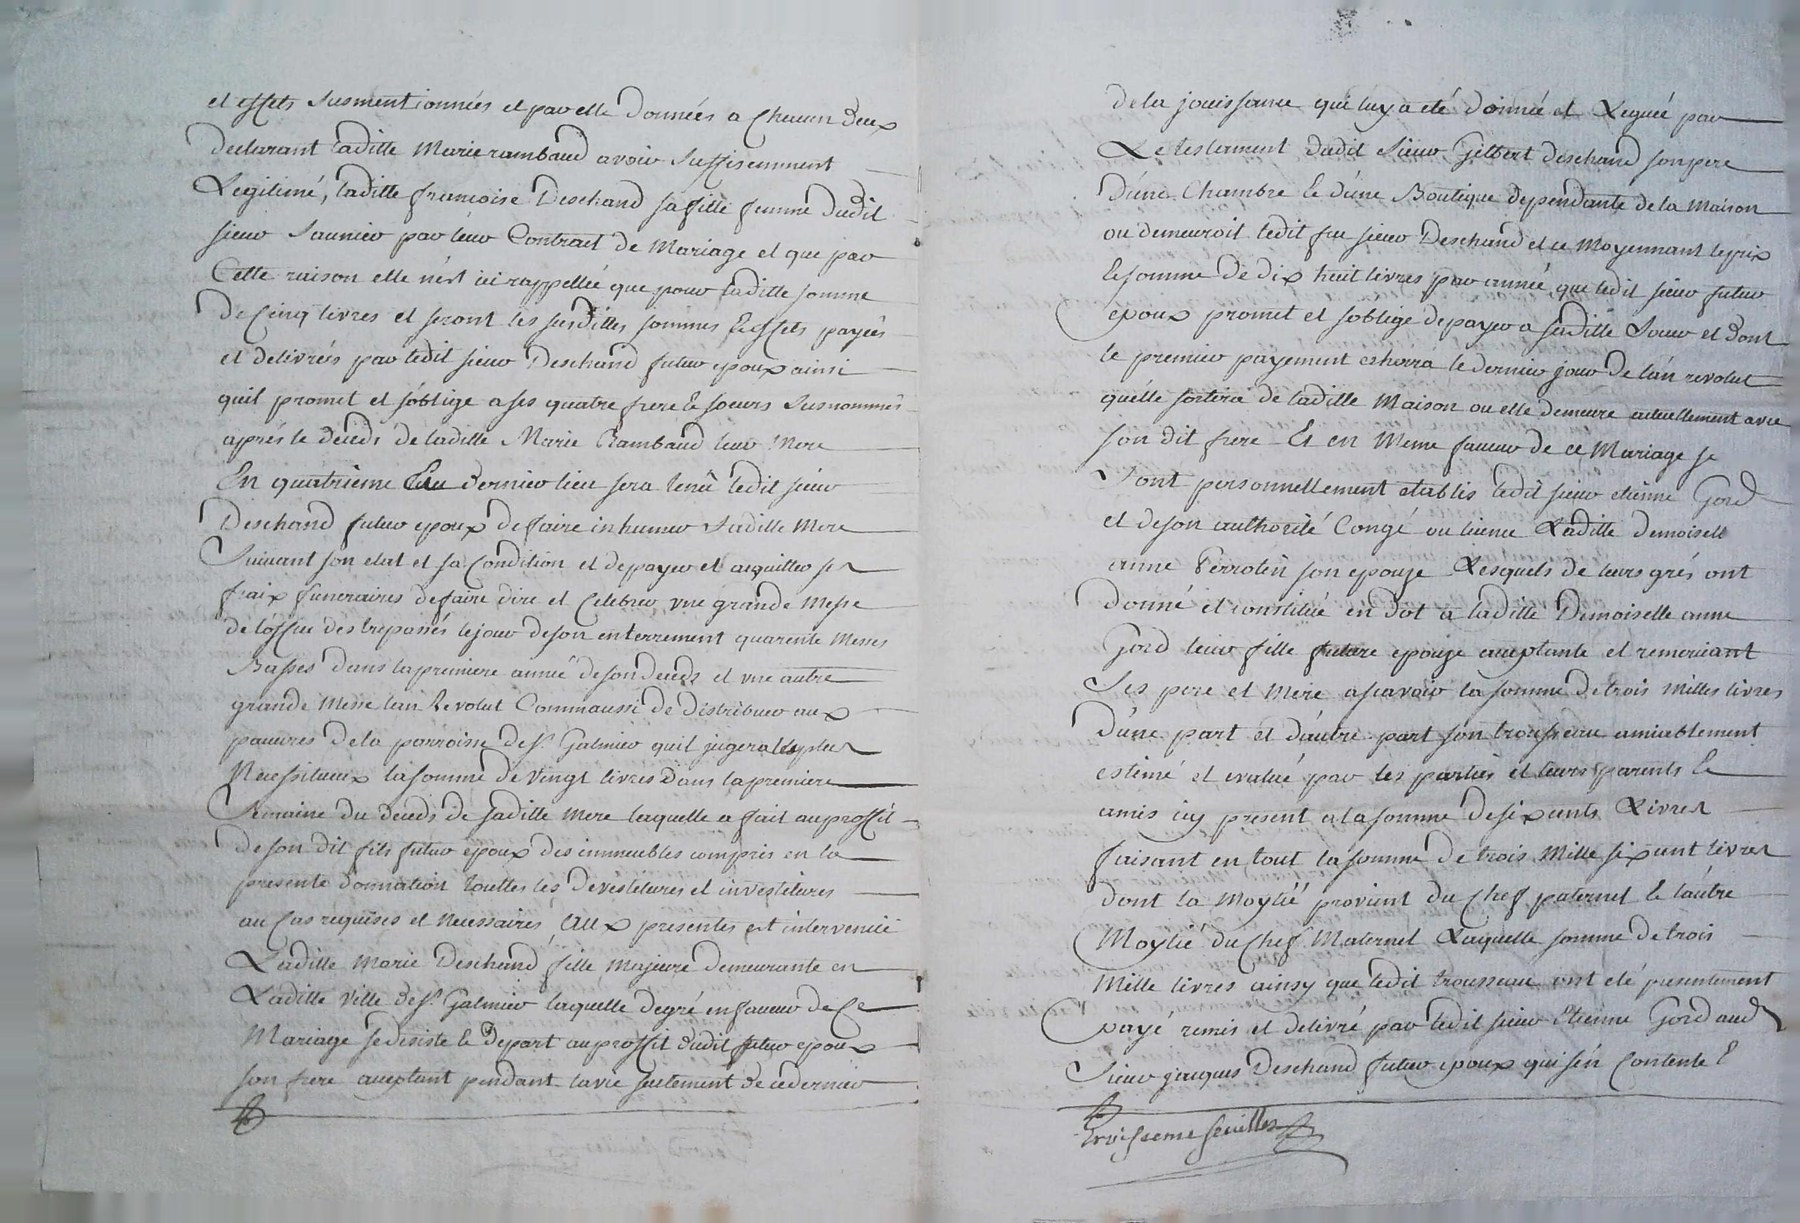 et effets susmentionnés et par elle donnés a Chacun deux
declarant laditte Marie rambaud avoir suffisemment
Legitimé, laditte francoise Deschand sa fille femme dudit
sieur Saunier par leur Contrait de Mariage et que par
Cette raison elle n'est ici rappellée que pour laditte somme
de Cinq livres et seront les susdittes sommes & effets payés
et delivrés par ledit sieur Deschand futur epoux ainsi
quil promet et s'oblige a ses quatre frere & soeurs susnommés
aprés le decéds de laditte Marie Rambaud leur Mere
En quatrieme Et dernier lieu sera tenu ledit sieur
Deschand futur epoux de faire inhumer saditte Mere
Suivant son etat et sa Condition et de payer et acquitter ses
fraix funeraires de faire dire et Celebrer une grande Messe
de l'office des trepassés le jour de son enterrement quarente Messes
Basses dans la premiere année de son deceds et une autre
grande Messe l'an Revolut Comm aussi de distribuer aux
pauvres de la parroisse de St. Galmier quil jugera les plus
Necessiteux la somme de vingt livres dans la premiere
Semaine du deceds de saditte Mere laquelle a fait au proffit
de son dit fils futur epoux des immeubles compris en la
presente donnation touttes les devestitures et investitures
au Cas requises et Necessaires, Aux presentes est intervenüe
Laditte Marie Deschand fille Majeure demeurante en
Laditte ville de St. Galmier laquelle de gré en faveur de Ce
Mariage se desiste & depart au proffit dudit futur epoux
son frere acceptant pendant la vie seulement de ce dernier
de la jouissance qui luy a eté donnée et Leguée par
Le testament dudit Sieur Gilbert deschand son pere
d'une Chambre & d'une Boutique dependante de la Maison
ou demeuroit ledit feu sieur Deschand et ce Moyennant le prix
& somme de dix huit livres par année que ledit sieur futur
epoux promet et s'oblige de payer a saditte Soeur et dont
le premier payement echorra le dernier jour de l'an revolut
qu'elle sortira de laditte Maison ou elle demeure actuellement avec
son dit frere Et en Meme faveur de ce Mariage se
sont personnellement etablis ledit sieur etienne Gord
et de son authorité Congé ou licence Laditte demoiselle
anne Perrotin son epouze Lesquels de leurs grés ont
donné et constitué en dot a laditte Demoiselle anne
Gord leur fille future epouze acceptante et remerciant
Ses pere et Mere ascavoir la somme de trois Milles livres
d'une part et d'autre part son trousseau amiablement
estimé et evalué par les parties et leurs parents &
amis icy present a la somme de six cents Livres
faisant en tout la somme de trois Mille six cent livres
dont la Moytié provient du Chef paternel & l'autre
Moytié du Chef Maternel Laquelle somme de trois
Mille livres ainsy que ledit trousseau ont eté presentement
payé remis et delivré par ledit sieur Etienne Gord audt
Sieur jacques Deschand futur epoux qui s'en Contente &
troisieme feuilles